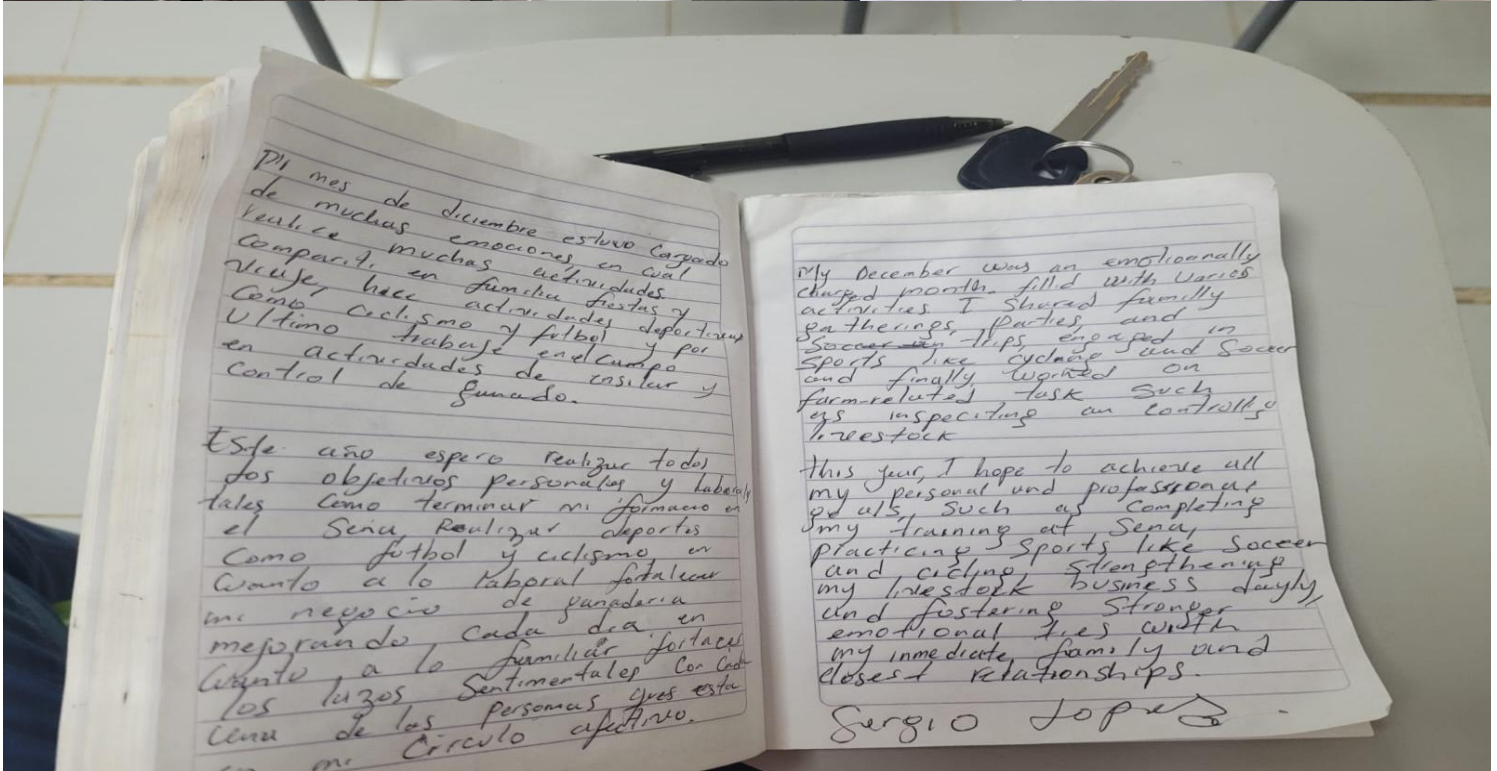 Mi mes de diciembre estuvo cargado
de muchas emociones en cual
realice muchas actividades
comparti en familia fiestas y
viaje, hace actividades deportivas
como ciclismo y futbol y por
ultimo trabaje en el campo
en actividades de ensilar y
control de ganado.
Este año espero realizar todos
los objetivos personales y
tales como terminar mi formacio en
el Sena, Realizar deportes
como futbol y ciclismo, en
cuanto a lo laboral fortalecer
mi negocio de ganaderia
mejorando cada dia en
cuanto a lo familiar
los lazos sentimentales con
de las personas esta
mi circulo afectivo.
My December was an emotionally
charged month. filld with varios
activities I shared familly
gatherings, parties, and
trips engaged in
sports like cycling and soccer
and finally worked on
farm-related task such
as inspeciting an controlling
livestock
this year, I hope to achieve all
my personal and professional
goals, such as completing
my training at Sena,
practicing sports like soccer
and cicling strengthening
my livestock business dayly,
and fostering stronger
emotional ties with
my inmediate family and
closest relationships.
Sergio Lopez